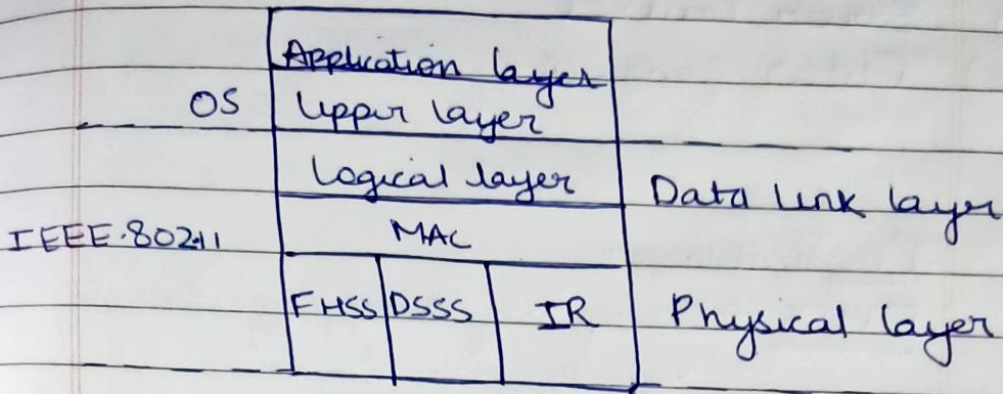 Application layer
OS Upper layer
Logical layer Data link layer
IEEE.802.11 MAC
FHSS DSSS IR Physical layer